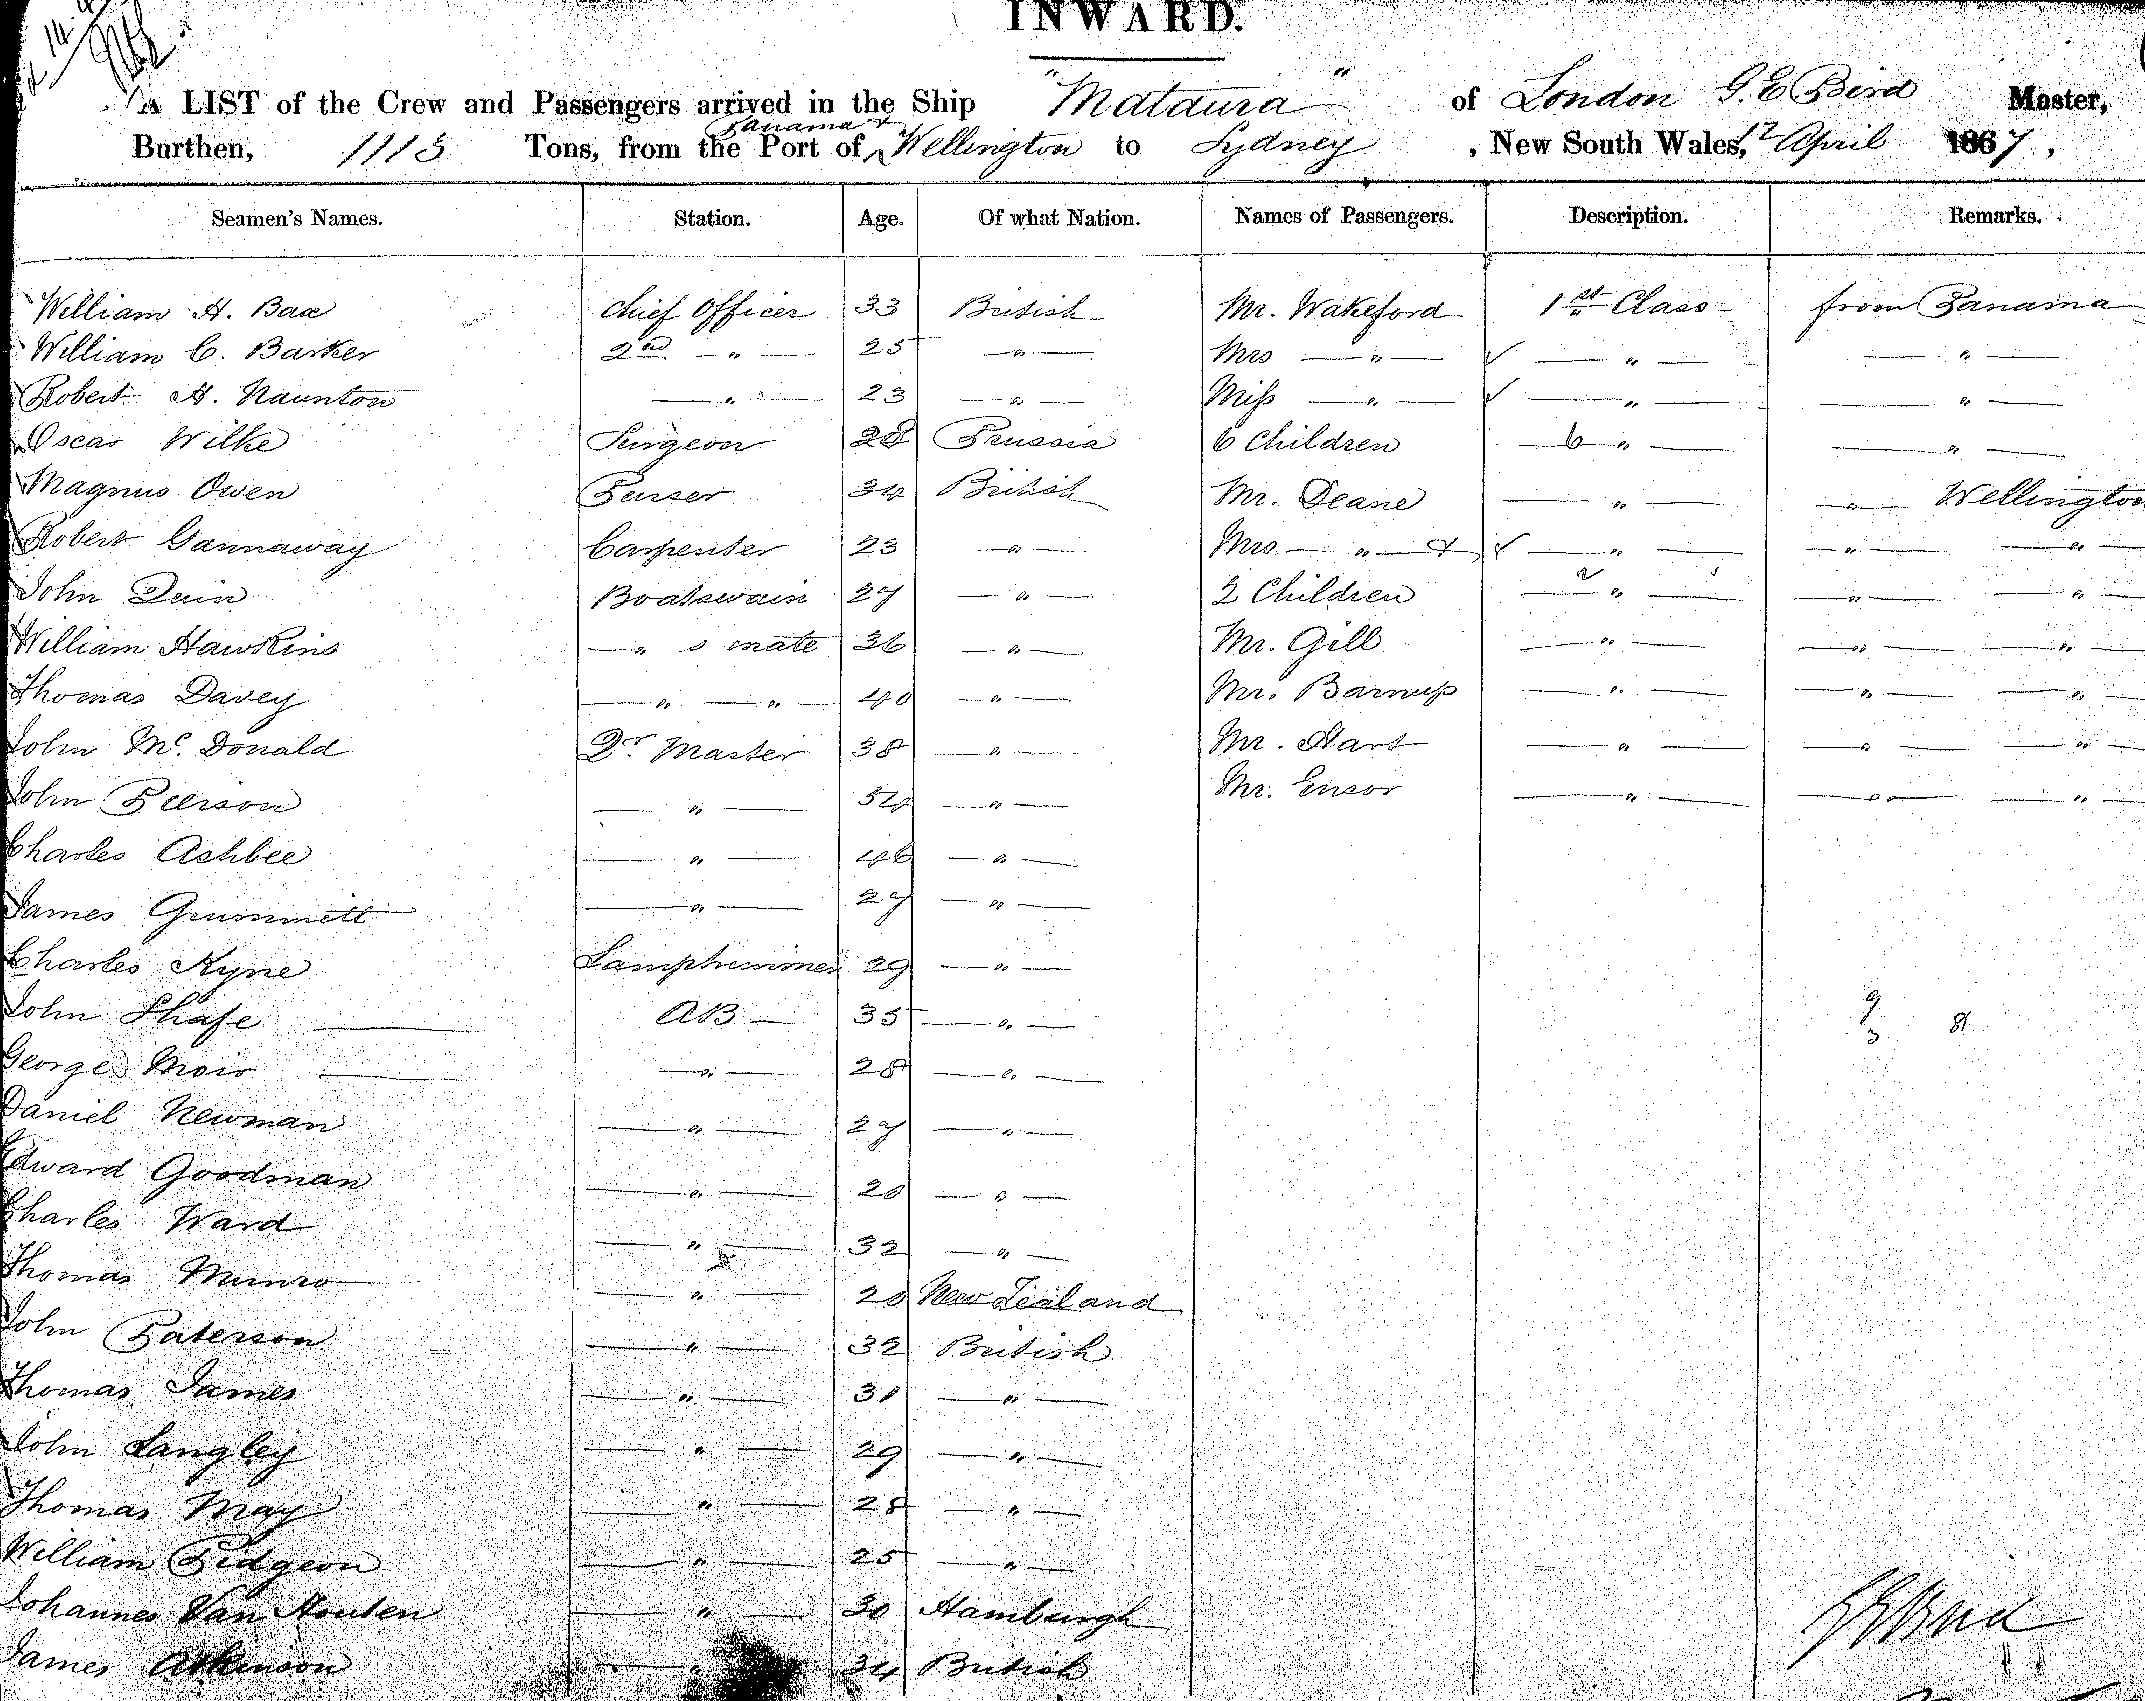 INWARD.
A LIST of the Crew and Passengers arrived in the Ship "Mataura" of London G. E Bird Master,
Panama &
Burthen, 1115 Tons, from the Port of Wellington to Sydney, New South Wales, 12 April 1867,
Seamen's Names. Station. Age. Of what Nation. Names of Passengers. Description. Remarks.
William H. Bax Chief Officer 33 British Mr. Wakeford 1st Class from Panama
William C. Barker 2nd — " — 25 — " — Mrs — " — ✓ — " — — " —
Robert H. Naunton — " — 23 — " — Miss — " — ✓ — " — — " —
Oscar Wilke Surgeon 28 Prussia 6 Children — 6 " — — " —
Magnus Owen Purser 34 British Mr. Deane — " — — " — Wellington
Robert Gannaway Carpenter 23 — " — Mrs — " — & ✓ — " — — " — — " —
John Quin Boatswain 27 — " — 2 Children — 2 " — — " — — " —
William Hawkins — " s mate 36 — " — Mr. Gill — " — — " — — " —
Thomas Davey — " — " — 40 — " — Mr. — " — — " — — " —
John Mc. Donald Qr Master 38 — " — Mr. Hart — " — — " — — " —
John Peerson — " — 54 — " — Mr. Ensor — " — — " — — " —
Charles Ashbee — " — 46 — " —
James Grummett — " — 27 — " —
Charles Kyne Lamptrimmer 29 — " —
John Shafe AB — 35 — " —
George Moir — " — 28 — " —
Daniel Newman — " — 27 — " —
Edward Goodman — " — 20 — " —
Charles Ward — " — 32 — " —
Thomas Munro — " — 20 New Zealand
John Paterson — " — 32 British
Thomas James — " — 31 — " —
John Langley — " — 29 — " —
Thomas May — " — 28 — " —
William Pidgeon — " — 25 — " —
Johannes Van Houten — " — 30 Hamburgh
James Atkinson — " — 34 British
G E Bird